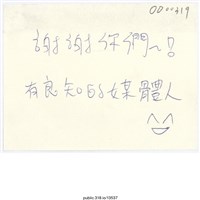 000719
謝謝你們～!
有良知的媒體人
public.318.io/10537